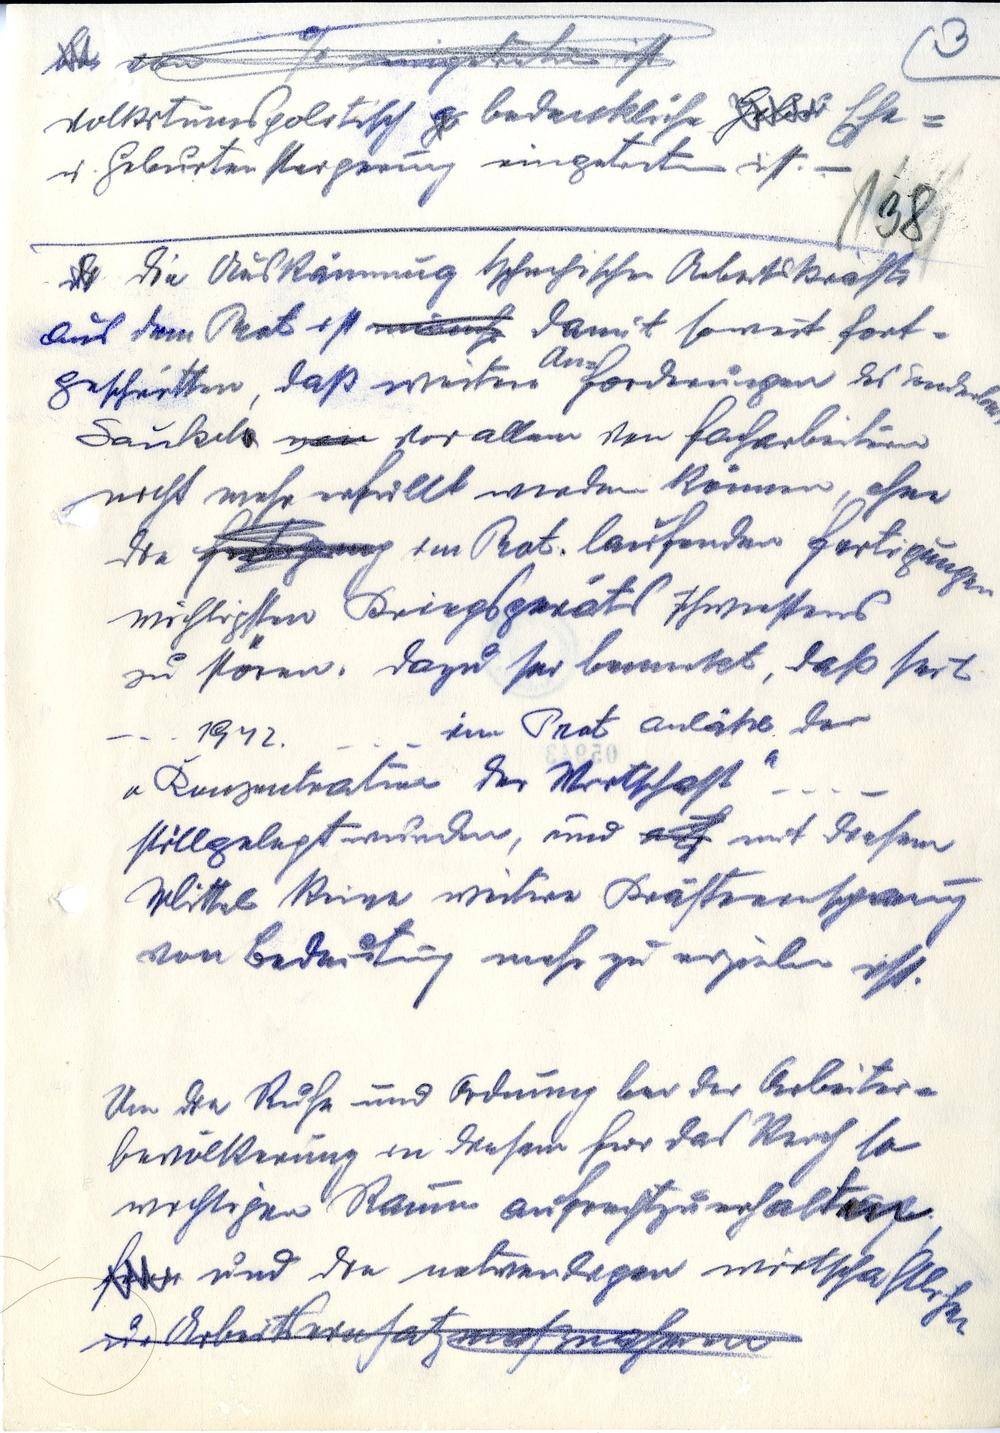 3
von % eingetreten ist
volkstumspolitisch bedenkliche Ehe=
u. Geburtensteigerung eingetreten ist. —
138
die Auskämmung tschechischer Arbeitskräfte
aus dem Prot ist damit soweit fort-
geschritten, daß weitere An=forderungen des
Sauckel vor allem von Facharbeitern
nicht mehr erfüllt werden können, ohne
die im Prot. laufenden Fertigungen
wichtigsten Kriegsgeräts schwerstens
zu stören. Dazu sei bemerkt, daß seit
--- 1942. ---- im Prot anläßl. der
"Konzentration der Wirtschaft" ----
stillgelegt wurden, und mit diesem
Mittel keine weitere Kräfteeinsparung
von Bedeutung mehr zu erzielen ist.
Um die Ruhe und Ordnung bei der Arbeiter=
bevölkerung in diesem für das Reich so
wichtigen Raum aufrechtzuerhalten,
und die notwendigen wirtschaftlichen
u. Arbeitseinsatzmaßnahmen